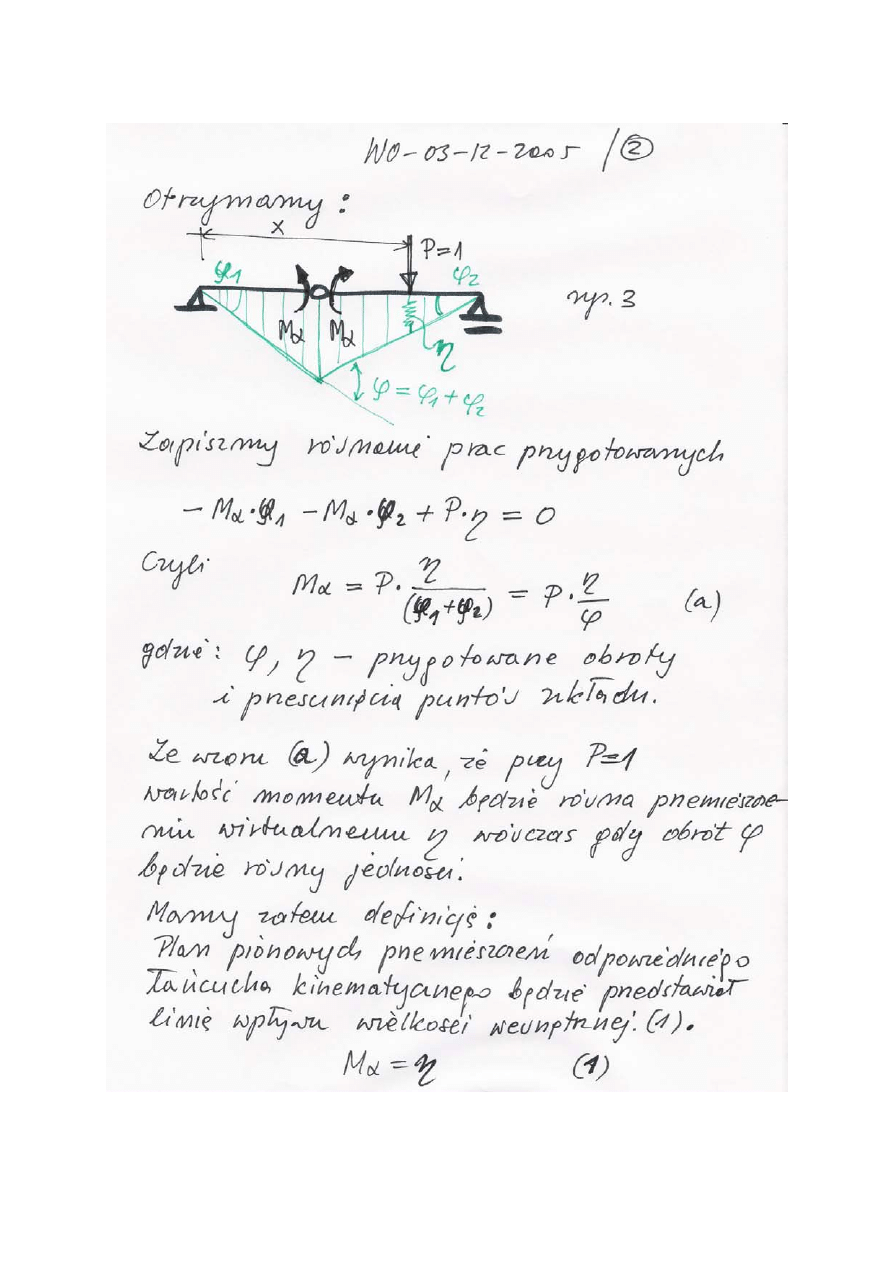 WO-03-12-2005 / 2
Otrzymamy :
x
P=1
φ1
φ2
Mα
Mα
η
φ = φ1 + φ2
rys. 3
Zapiszmy równanie prac przygotowanych
− Mα·φ1 − Mα·φ2 + P·η = 0
Czyli
Mα = P· η/(φ1+φ2) = P· η/φ (a)
gdzie: φ, η − przygotowane obroty
i przesunięcia puntów układu.
Ze wzoru (a) wynika, że przy P=1
wartość momentu Mα będzie równa przemieszcze-
niu wirtualnemu η wówczas gdy obrót φ
będzie równy jedności.
Mamy zatem definicję :
Plan pionowych przemieszczeń odpowiedniego
łańcucha kinematycznego będzie przedstawiał
linię wpływu wielkości wewnętrznej. (1).
Mα = η (1)